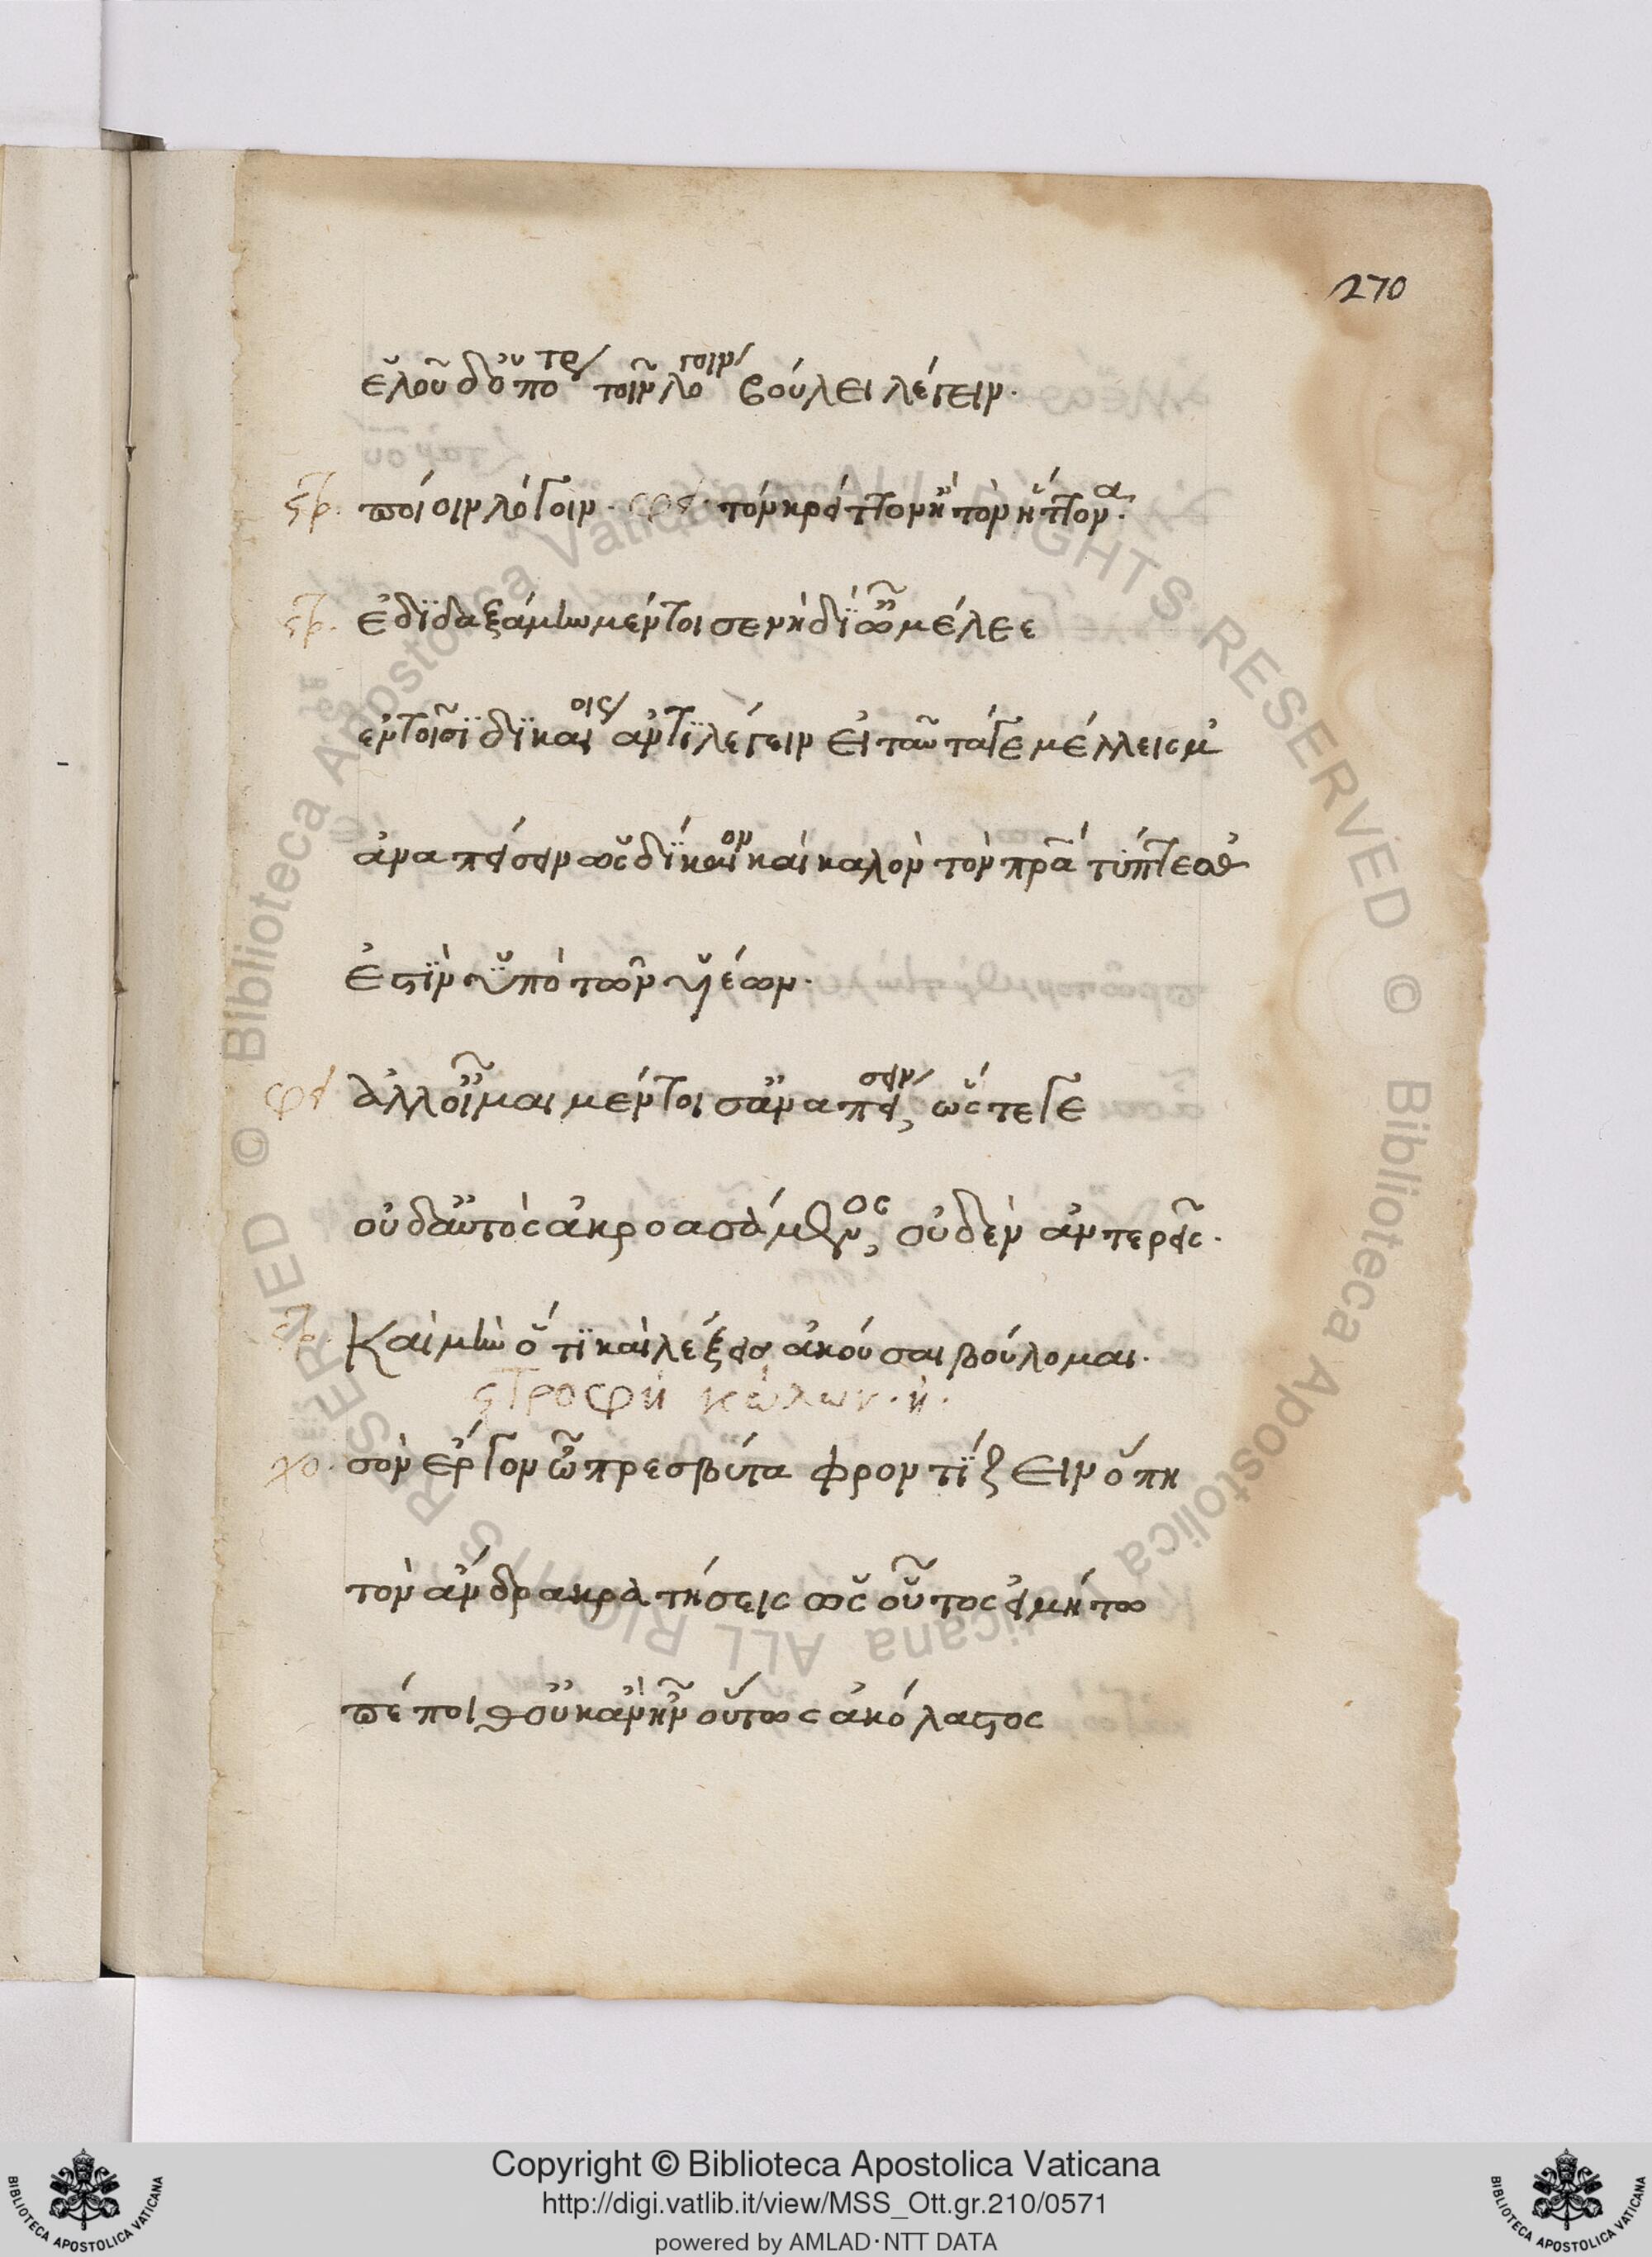 270
ἑλοῦ δ' ὁπότερον τοῖν λόγοιν βούλει λέγειν.
στρ. ποίοιν λόγοιν. φει. τὸν κρείττον' ἢ τὸν ἥττονα.
στρ. ἐδιδαξάμην μέντοι σε νὴ δί' ὦ μέλεε
ἐν τοῖσι δικαίοις ἀντιλέγειν εἰ ταῦτά γε μέλλεις μ'
ἀναπείσειν ὡς δίκαιον καὶ καλὸν τὸν πρα τύπτεσθ'
ἐστὶν ὑπὸ τῶν υἱέων.
φει ἀλλ' οἶμαι μέντοι σ' ἀναπείσειν, ὥστε γε
οὐδ' αὐτὸς ἀκροασάμενος, οὐδὲν ἀντερεῖς.
στρ. Καὶ μὴν ὅ τι καὶ λέξεις ἀκοῦσαι βούλομαι.
στροφὴ κώλων. η.
χο. σὸν ἔργον ὦ πρεσβύτα φροντίζειν ὅπη
τὸν ἄνδρα κρατήσεις ὡς οὗτος εἰ μή τω
πέποιθ' οὐκ ἂν ἦν οὕτως ἀκόλαστος
BIBLIOTECA APOSTOLICA VATICANA
Copyright © Biblioteca Apostolica Vaticana
http://digi.vatlib.it/view/MSS_Ott.gr.210/0571
powered by AMLAD·NTT DATA
BIBLIOTECA APOSTOLICA VATICANA
© Biblioteca Apostolica Vaticana ALL RIGHTS RESERVED © Biblioteca Apostolica Vaticana ALL RIGHTS RESERVED